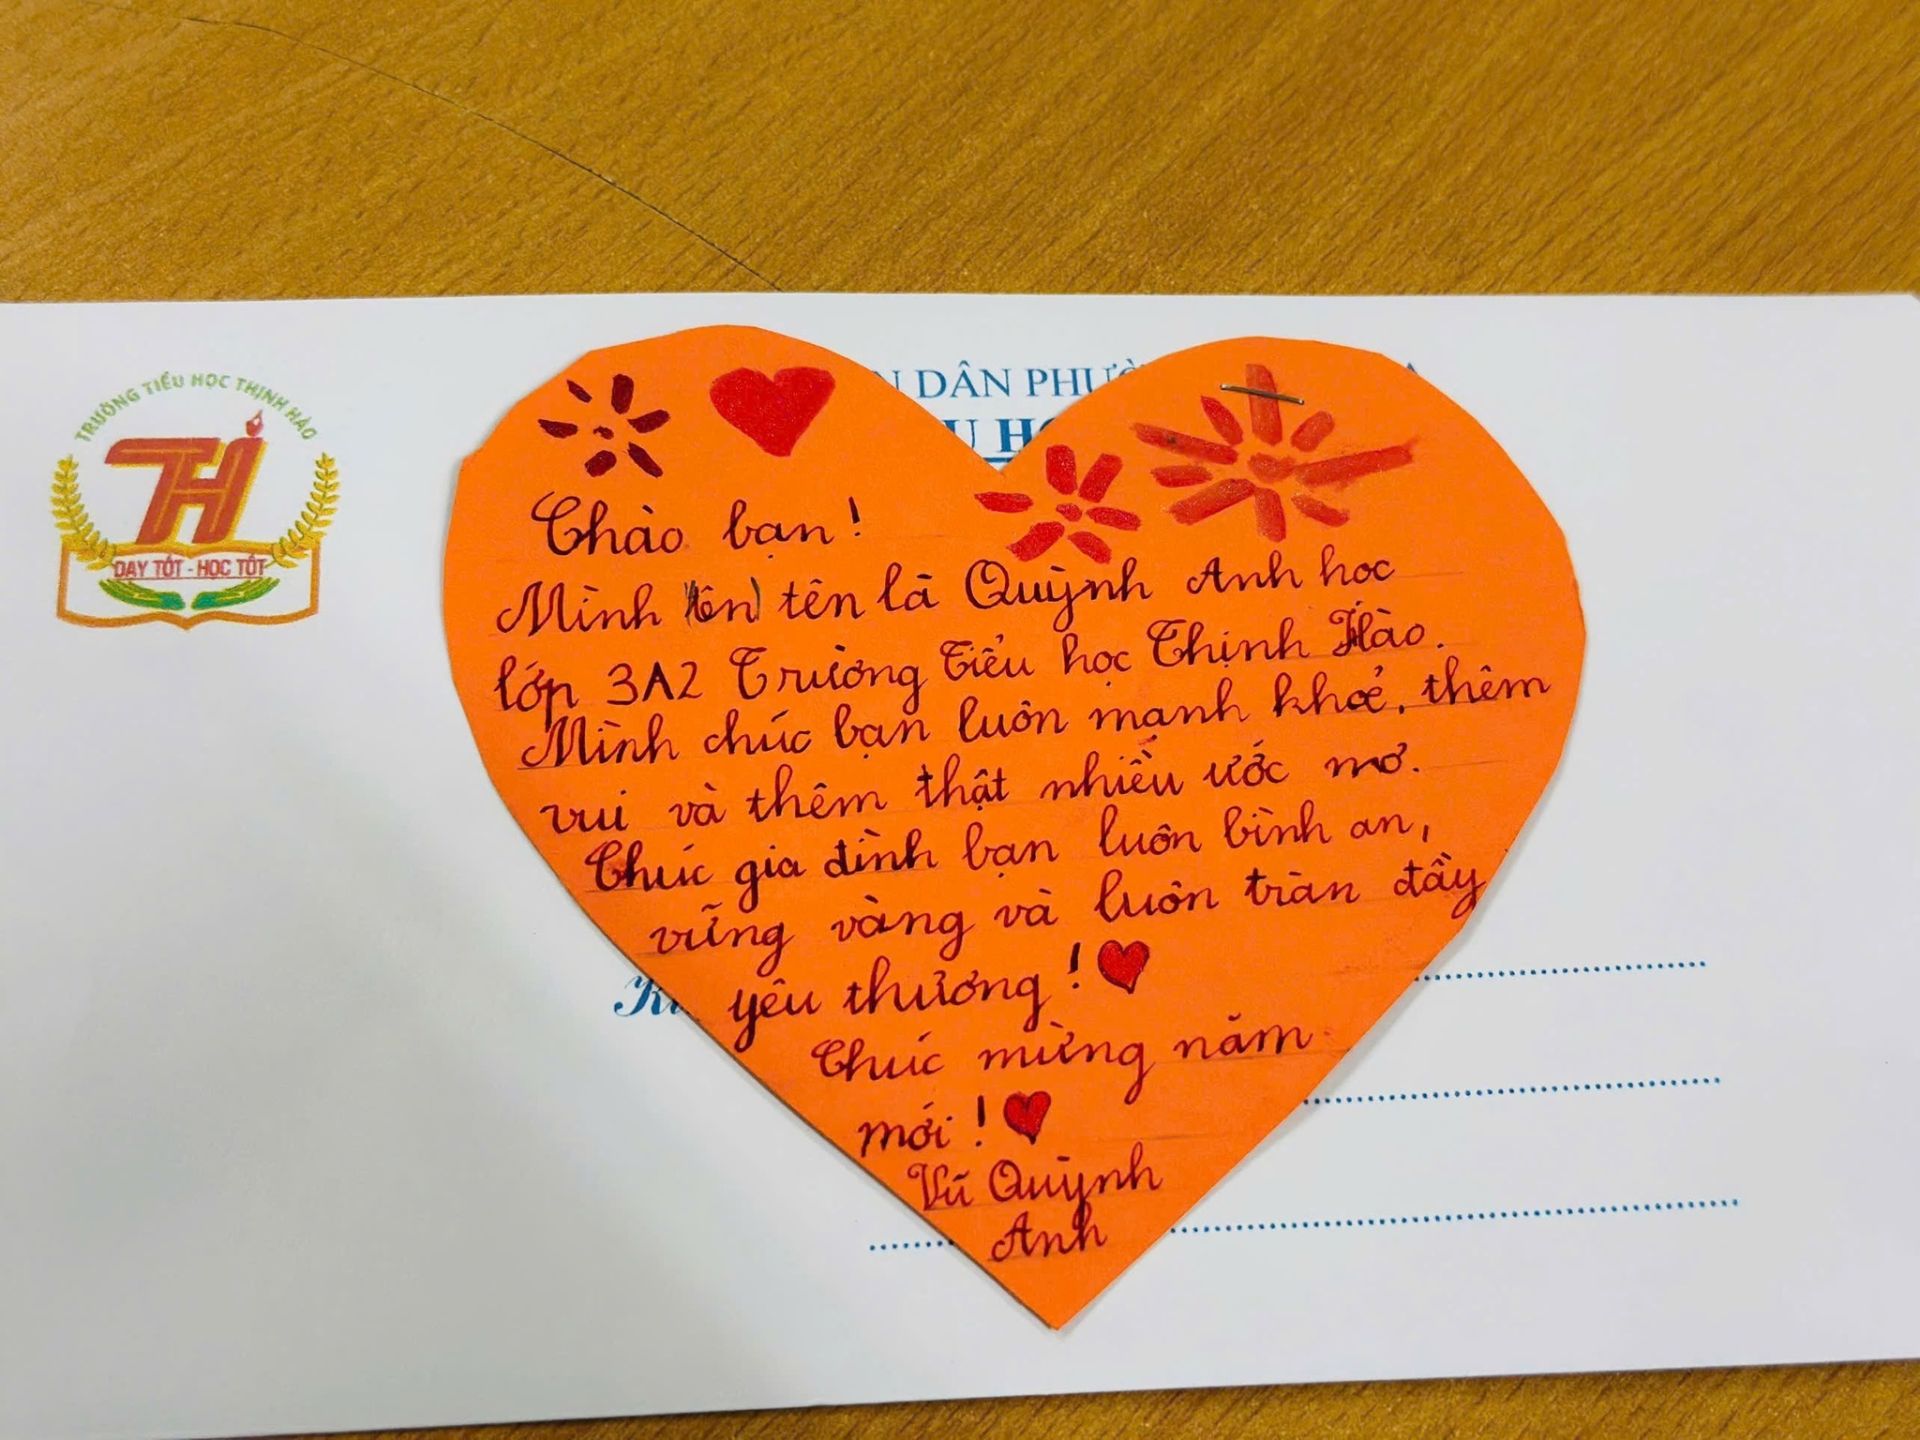 TRƯỜNG TIỂU HỌC THỊNH HÀO
TH
DẠY TỐT - HỌC TỐT
DÂN
Chào bạn!
Mình (tên) tên là Quỳnh Anh học
lớp 3A2 Trường Tiểu học Thịnh Hào.
Mình chúc bạn luôn mạnh khoẻ, thêm
vui và thêm thật nhiều ước mơ.
Chúc gia đình bạn luôn bình an,
vững vàng và luôn tràn đầy
yêu thương!
Chúc mừng năm
mới!
Vũ Quỳnh
Anh